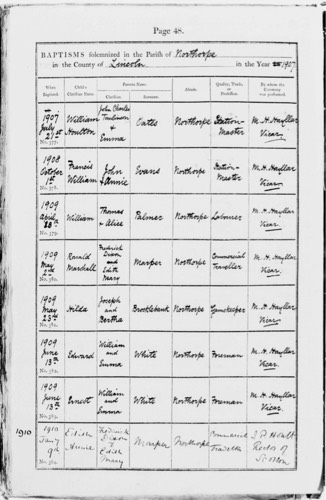 Page 48.
BAPTISMS solemnized in the Parish of Northorpe
in the County of Lincoln in the Year 1907
When Baptized. Child's Christian Name. Parents Name. Abode. Quality, Trade, or Profession. By whom the Ceremony was performed.
Christian. Surname.
1907 July 21st No. 377. William Houlton John Charles Tomlinson & Emma Oates Northorpe Station-Master M. H. Hayllar Vicar.
1908 October 1st No. 378. Francis William John & Annie Evans Northorpe Station-Master M. H. Hayllar Vicar.
1909 April 28th No. 379. William Thomas & Alice Palmer Northorpe Labourer M. H. Hayllar Vicar.
1909 May 2nd No. 380. Ronald Marshall Frederick Dixon and Edith Mary Marper Northorpe Commercial Traveller M. H. Hayllar Vicar.
1909 May 23rd No. 381. Hilda Joseph and Bertha Brocklebank Northorpe Gamekeeper M. H. Hayllar Vicar.
1909 June 13th No. 382. Edward William and Emma White Northorpe Foreman M. H. Hayllar Vicar.
1909 June 13th No. 383. Ernest William and Emma White Northorpe Foreman M. H. Hayllar Vicar.
1910 1910 Jany 9th No. 384. Edith Annie Frederick Dixon & Edith Mary Marper Northorpe Commercial Traveller Rector of Scotton